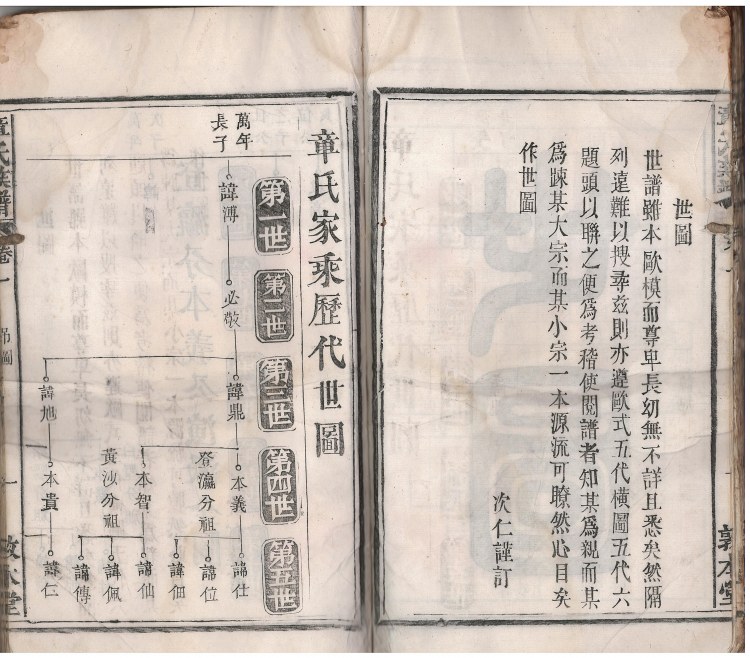 世圖
世譜雖本歐模而尊卑長幼無不詳且悉矣然隔
列遠難以搜尋兹則亦遵歐式五代橫圖五代六
題頭以聯之便爲考稽使閱譜者知某爲親而某
爲踈某大宗而某小宗一本源流可瞭然心目矣
作世圖
次仁謹訂
敦本堂
章氏家乘歷代世圖
第一世
第二世
第三世
第四世
第五世
萬年
長子
諱溥
必敬
諱鼎
本義
登瀛分祖
諱仕
諱位
諱佃
本智
黃沙分祖
諱仙
諱佩
諱傳
諱旭
本貴
諱仁
章氏族譜
卷一
吊圖
一
敦本堂